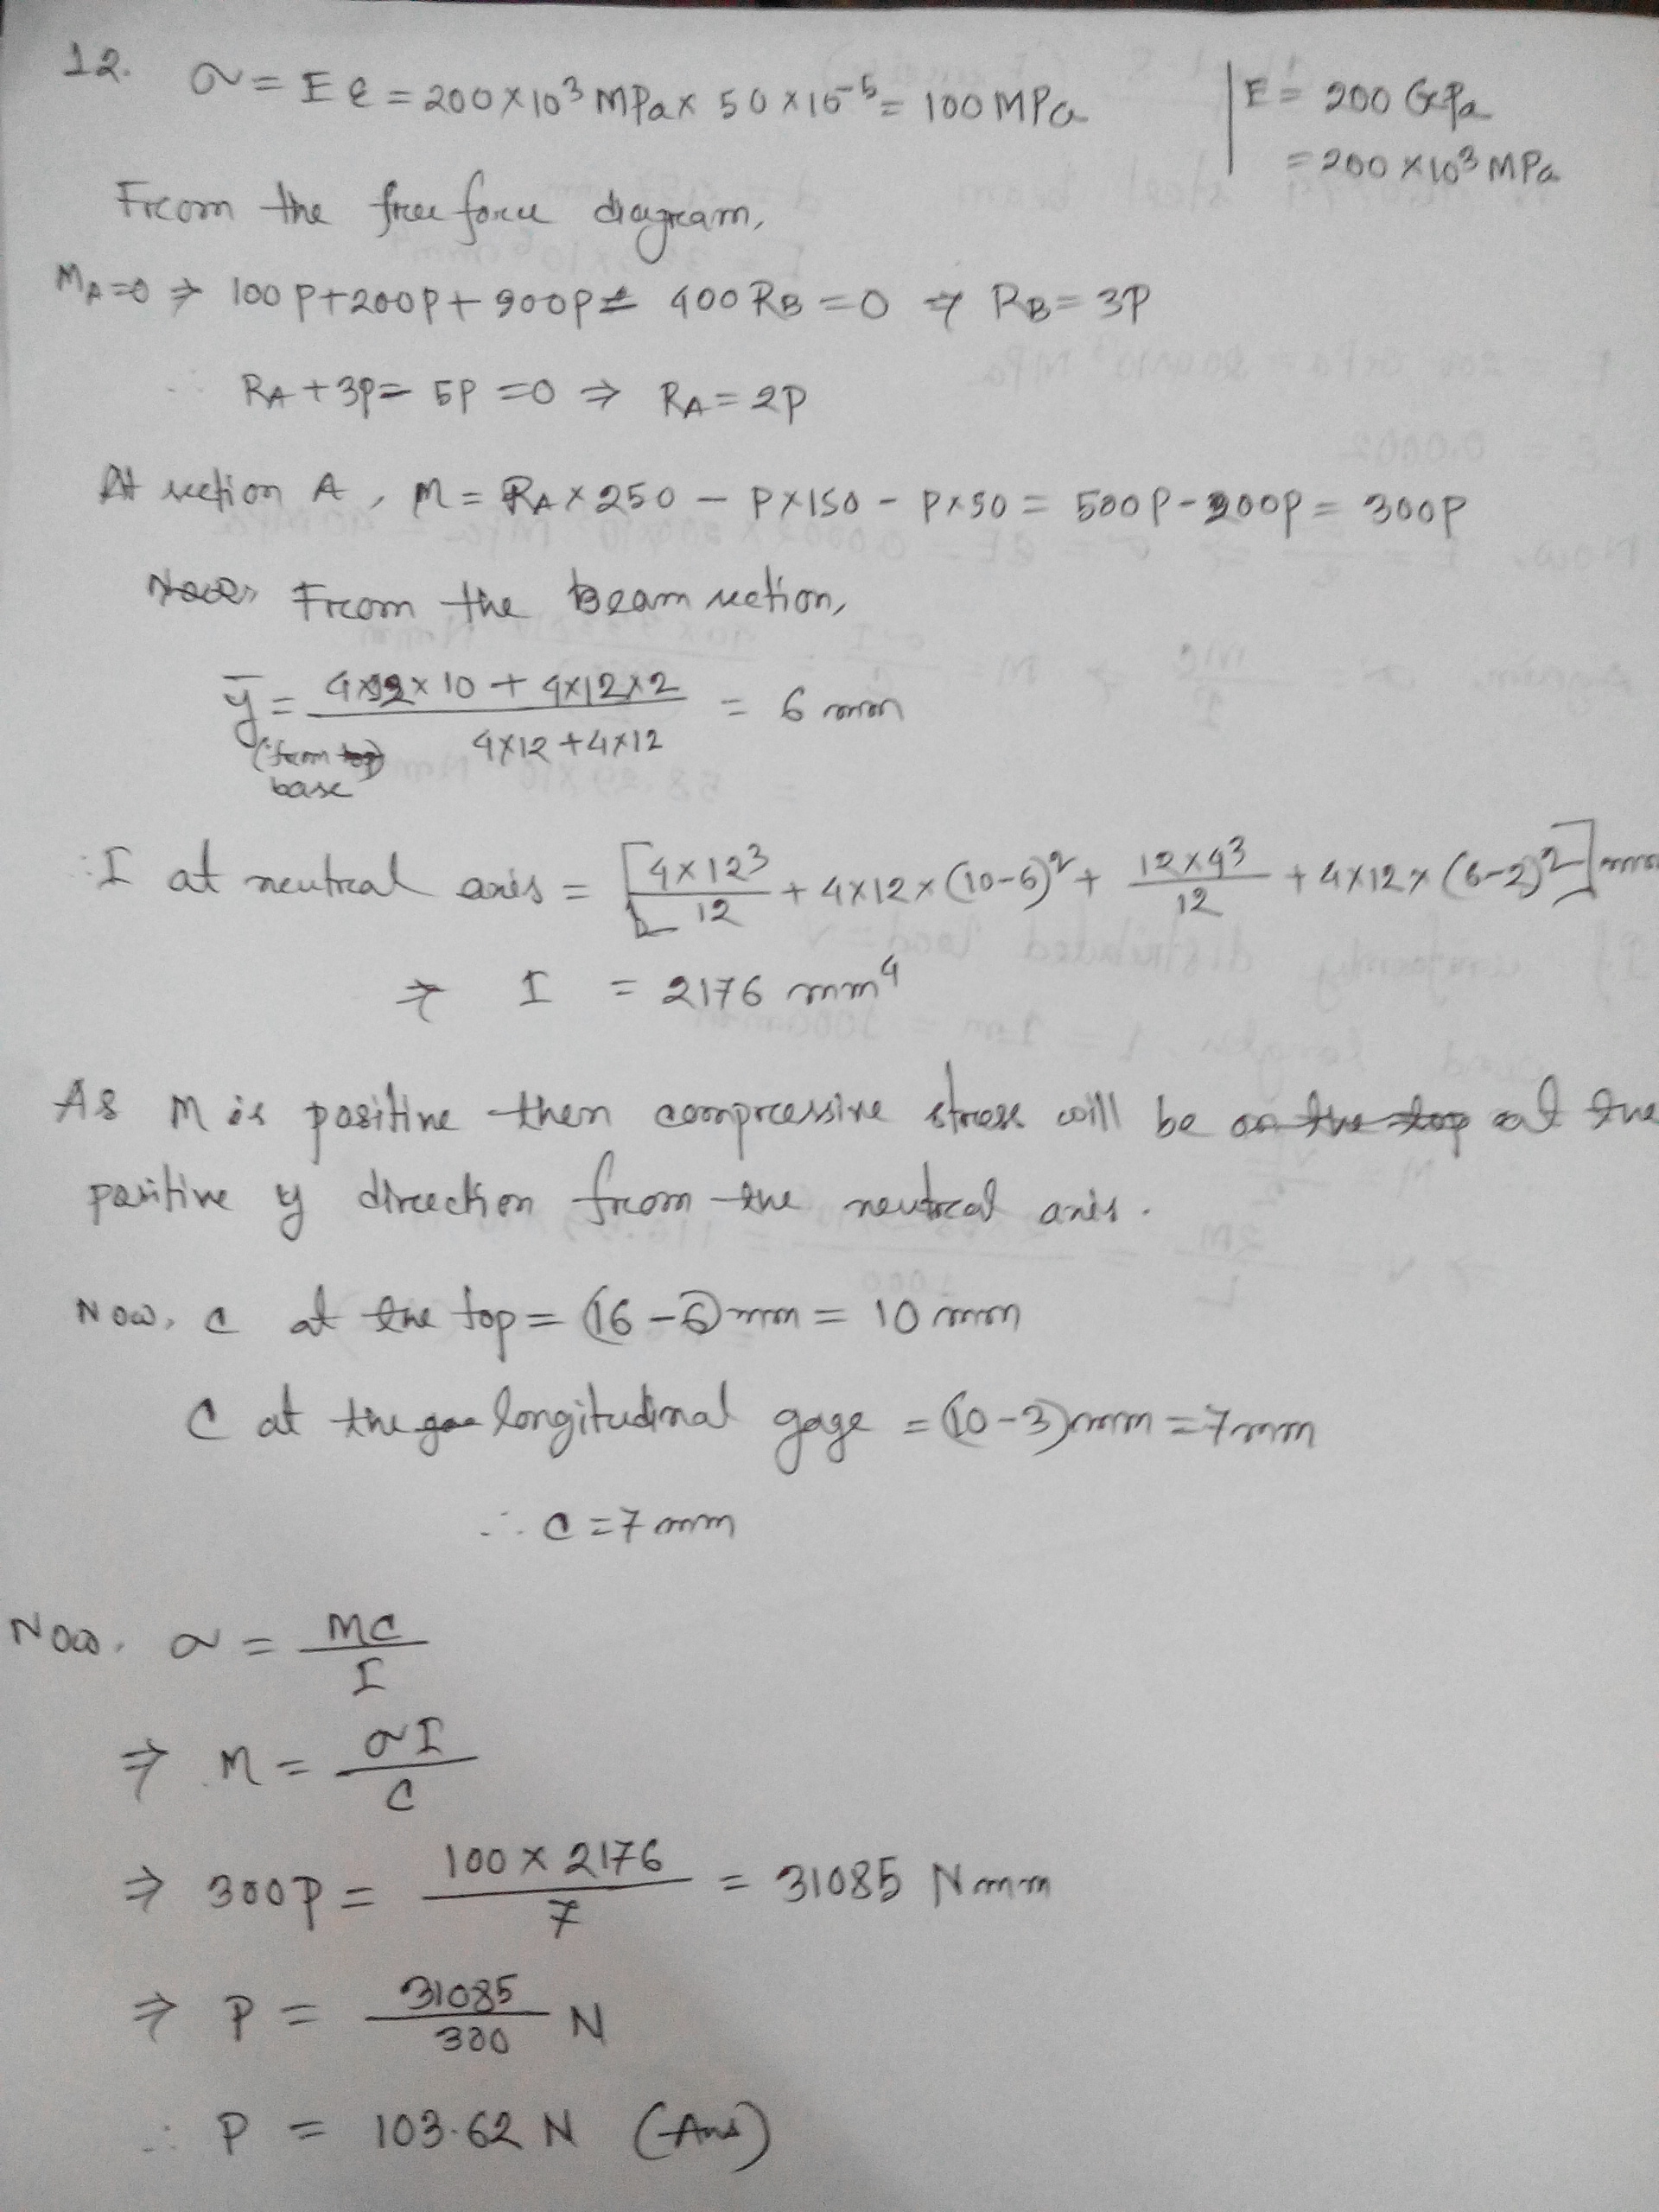 12. σ = E ε = 200×10³ MPa × 50×10⁻⁵ = 100 MPa
E = 200 GPa
= 200×10³ MPa
From the free force diagram,
M_A=0 ⇒ 100P+200P+900P = 400 R_B = 0 ⇒ R_B = 3P
∴ R_A + 3P = 5P = 0 ⇒ R_A = 2P
At section A, M = R_A × 250 − P×150 − P×50 = 500P − 200P = 300P
From the Beam section,
ȳ = (4×12×10 + 4×12×2) / (4×12 + 4×12) = 6 mm
(from base)
∴ I at neutral axis = [4×12³/12 + 4×12×(10−6)² + 12×4³/12 + 4×12×(6−2)²] mm
⇒ I = 2176 mm⁴
As M is positive then compressive stress will be on the top at the
positive y direction from the neutral axis.
Now, C at the top = (16−6) mm = 10 mm
C at the longitudinal gage = (10−3) mm = 7 mm
∴ C = 7 mm
Now, σ = MC/I
⇒ M = σI/C
⇒ 300P = 100 × 2176/7 = 31085 Nmm
⇒ P = 31085/300 N
∴ P = 103.62 N (Ans)